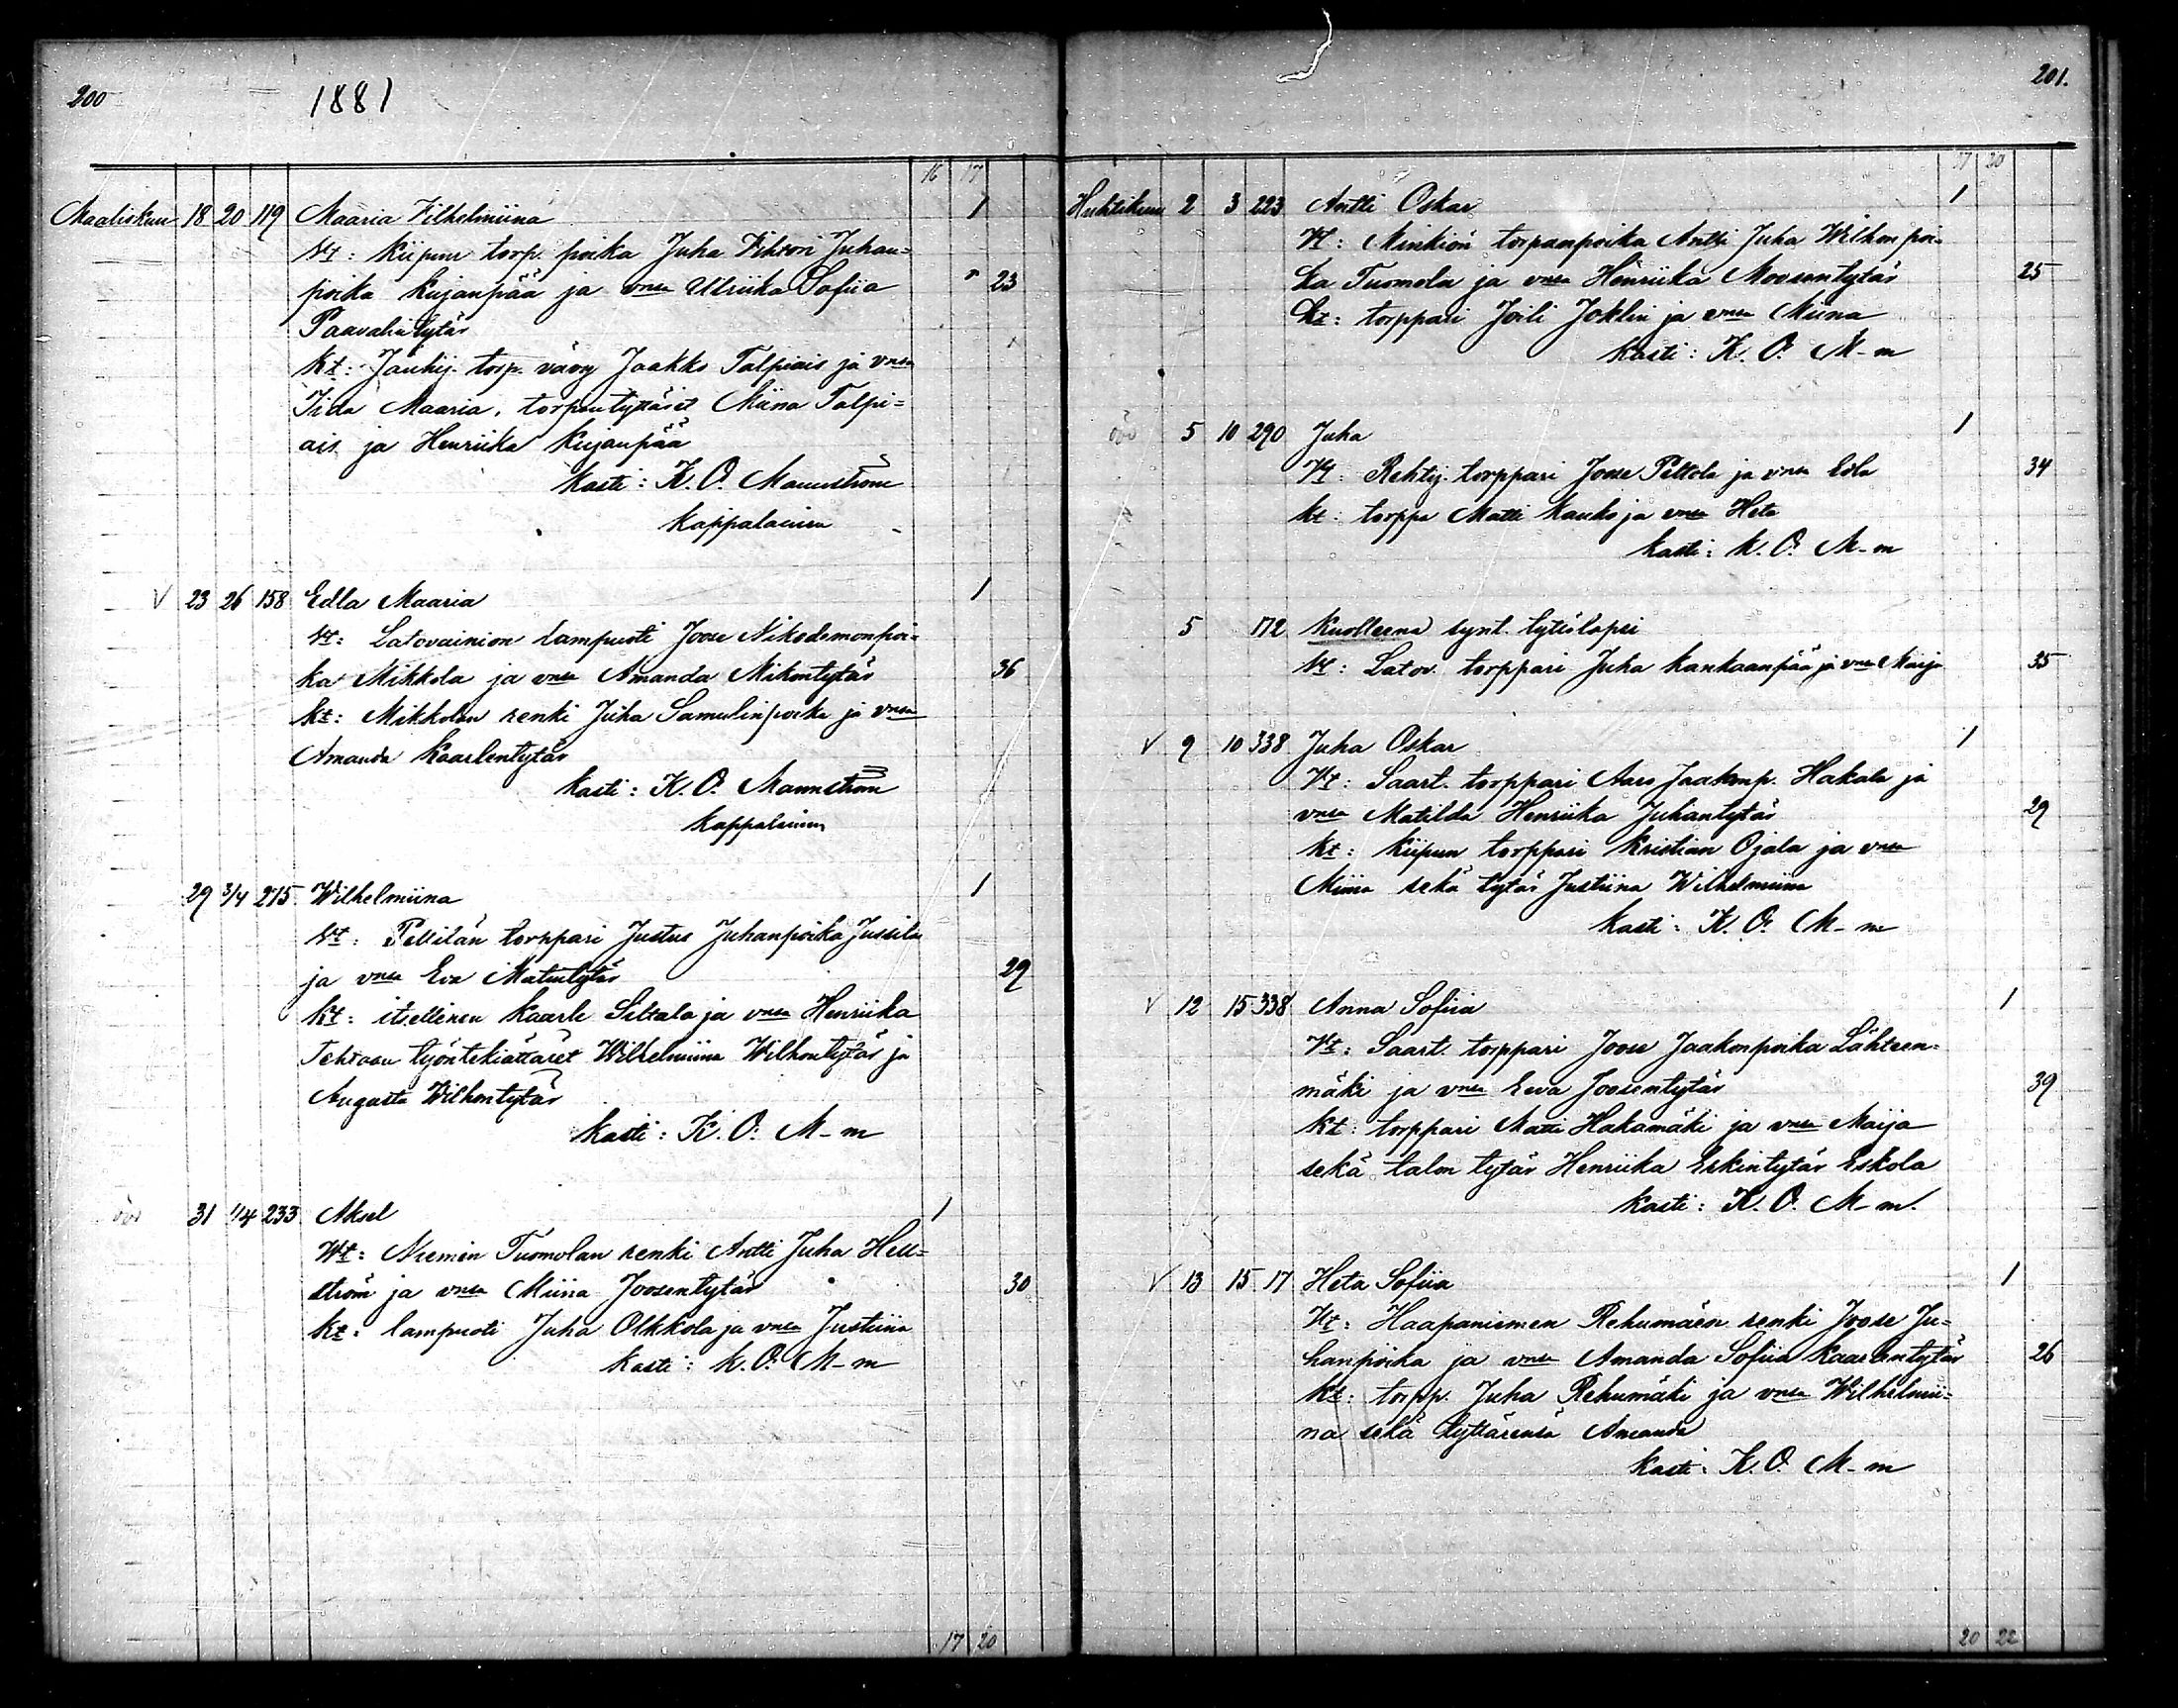 200
1881
16 17
Maaliskuu 18 20 119 Maaria Vilhelmiina 1
Vt: Kiipun torp. poika Juha Vihtori Juhan=
poika Kujanpää ja vnsa Ulriika Sofiia 23
Paavalintytär
Kt: Jauhij. torp. vävy Jaakko Talpiais ja vnsa
Iida Maaria, torpantyttäret Miina Talpi=
ais ja Henriika Kujanpää
Kasti: K. O. Mannström
Kappalainen
V 23 26 158 Edla Maaria 1
Vt: Latovainion lampuoti Joose Nikodemonpoi=
ka Mikkola ja vnsa Amanda Mikontytär 36
Kt: Mikkolan renki Juha Samulinpoika ja vnsa
Amanda Kaarlentytär
Kasti: K. O. Mannström
Kappalainen
29 3/4 275 Wilhelmiina 1
Vt: Pellilän torppari Justus Juhanpoika Jussila
ja vnsa Eva Matintytär 29
Kt: itsellinen Kaarle Siltala ja vnsa Henriika
Tehtaan työntekiättäret Wilhelmiina Wilhontytär ja
Augusta Wilhontytär
Kasti: K. O. M-m
31 1/4 233 Aksel 1
Vt: Niemen Tuomolan renki Antti Juha Hell=
ström ja vnsa Miina Joosentytär 30
Kt: lampuoti Juha Olkkola ja vnsa Justiina
Kasti: K. O. M-m
17 20
201.
17 20
Huhtikuu 2 3 223 Antti Oskar 1
Vt: Minkiön torpanpoika Antti Juha Wilhon poi=
ka Tuomola ja vnsa Henriika Moosentytär 25
Kt: torppari Joili Joklin ja vnsa Miina
Kasti: K. O. M-m
5 10 290 Juha 1
Vt: Rehtij. torppari Joose Peltola ja vnsa Edla 34
Kt: torppa Matti Kauko ja vnsa Heta
Kasti: K. O. M-m
5 172 Kuolleena synt. tytöslapsi
Vt: Latov. torppari Juha Kankaanpää ja vnsa Maija 35
V 9 10 338 Juha Oskar 1
Vt: Saart. torppari Aaro Jaakonp. Hakala ja
vnsa Matilda Henriika Juhantytär 29
Kt: Kiipun torppari Kristian Ojala ja vnsa
Miina sekä tytär Justiina Wilhelmiina
Kasti: K. O. M-m
V 12 15 338 Anna Sofiia 1
Vt: Saart. torppari Joose Jaakonpoika Lähteen=
mäki ja vnsa Eeva Joosentytär 39
Kt: torppari Matti Hakamäki ja vnsa Maija
sekä talon tytär Henriika Erkintytär Eskola
Kasti: K. O. M-m.
V 13 15 17 Heta Sofiia 1
Vt: Haapaniemen Rehumäen renki Joose Ju=
hanpoika ja vnsa Amanda Sofiia Kaarlentytär 26
Kt: torpp. Juha Rehumäki ja vnsa Wilhelmii=
na sekä tyttärensä Amanda
Kasti: K. O. M-m
20 22